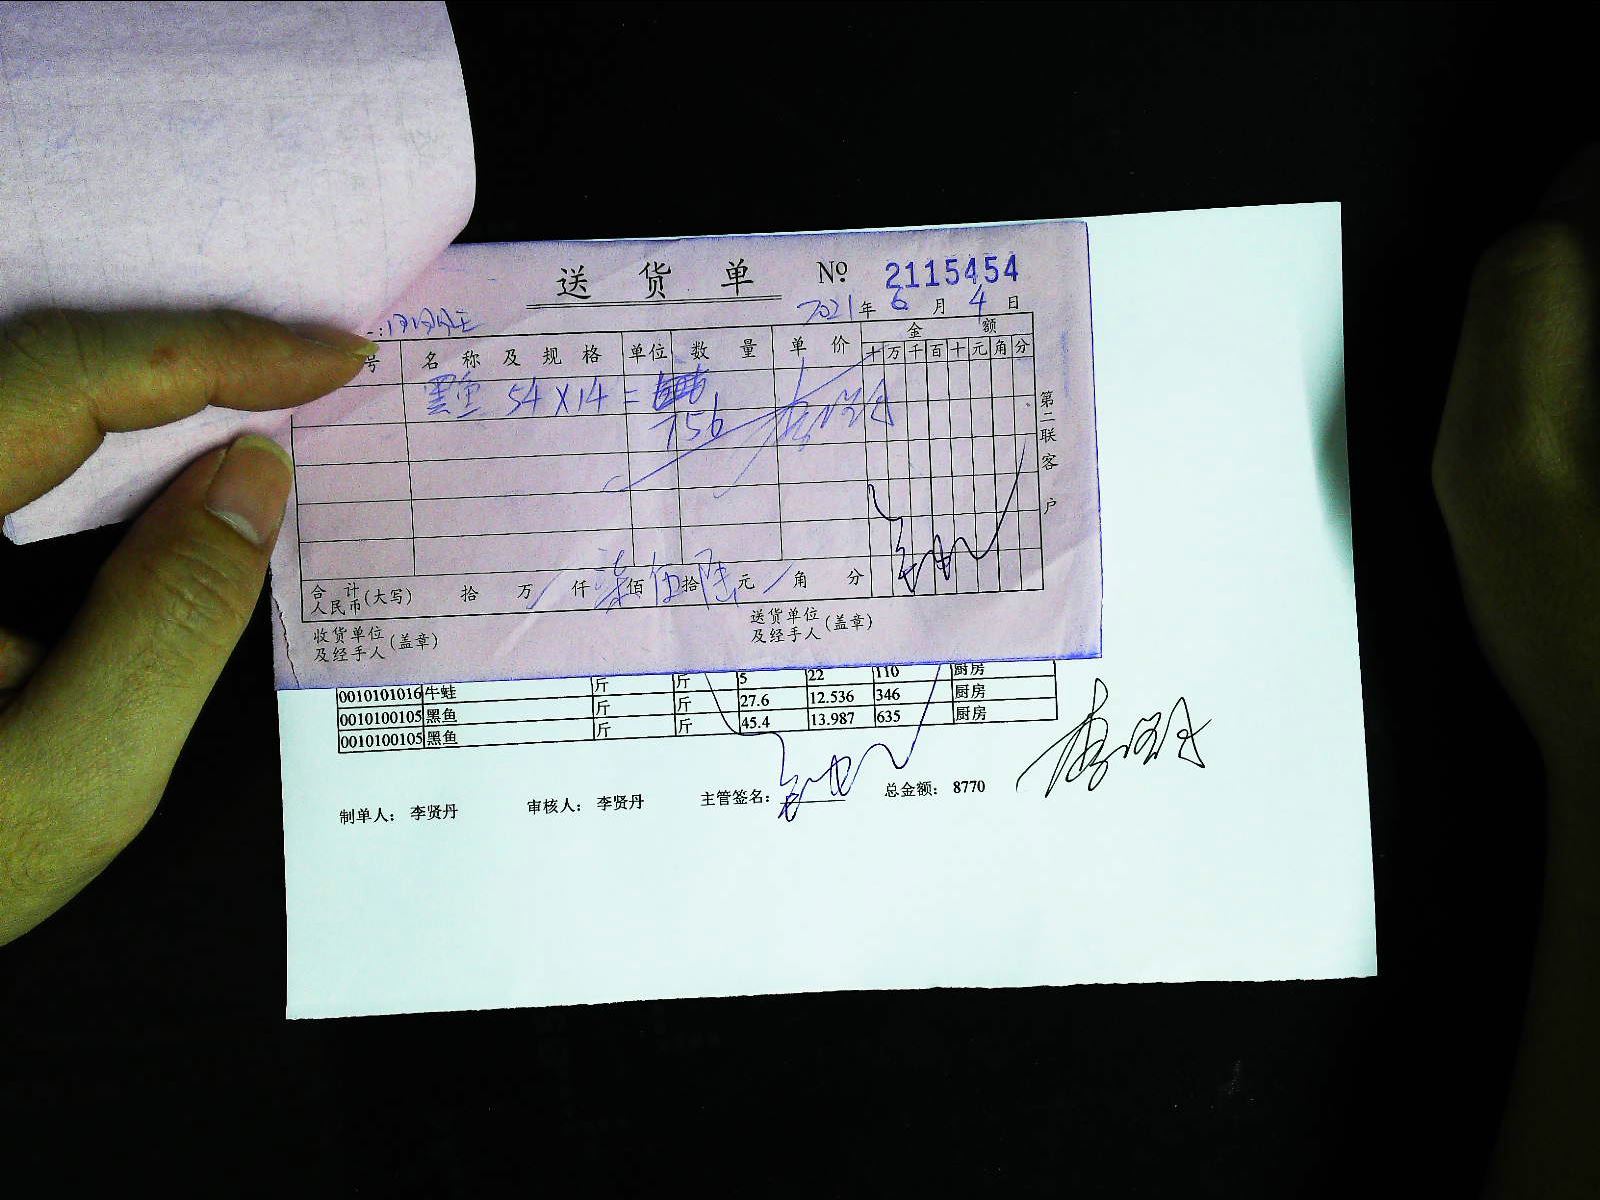 送货单 № 2115454
2021年6月4日
号 名称及规格 单位 数量 单价 金额
十万千百十元角分
黑鱼 54×14=
756
第二联客户
合计人民币(大写) 拾 万 仟 柒佰伍拾陆元 角 分
收货单位及经手人(盖章) 送货单位及经手人(盖章)
5 22 110 厨房
0010101016 牛蛙 斤 斤 27.6 12.536 346 厨房
0010100105 黑鱼 斤 斤 45.4 13.987 635 厨房
0010100105 黑鱼 斤 斤
制单人： 李贤丹 审核人： 李贤丹 主管签名： 总金额： 8770